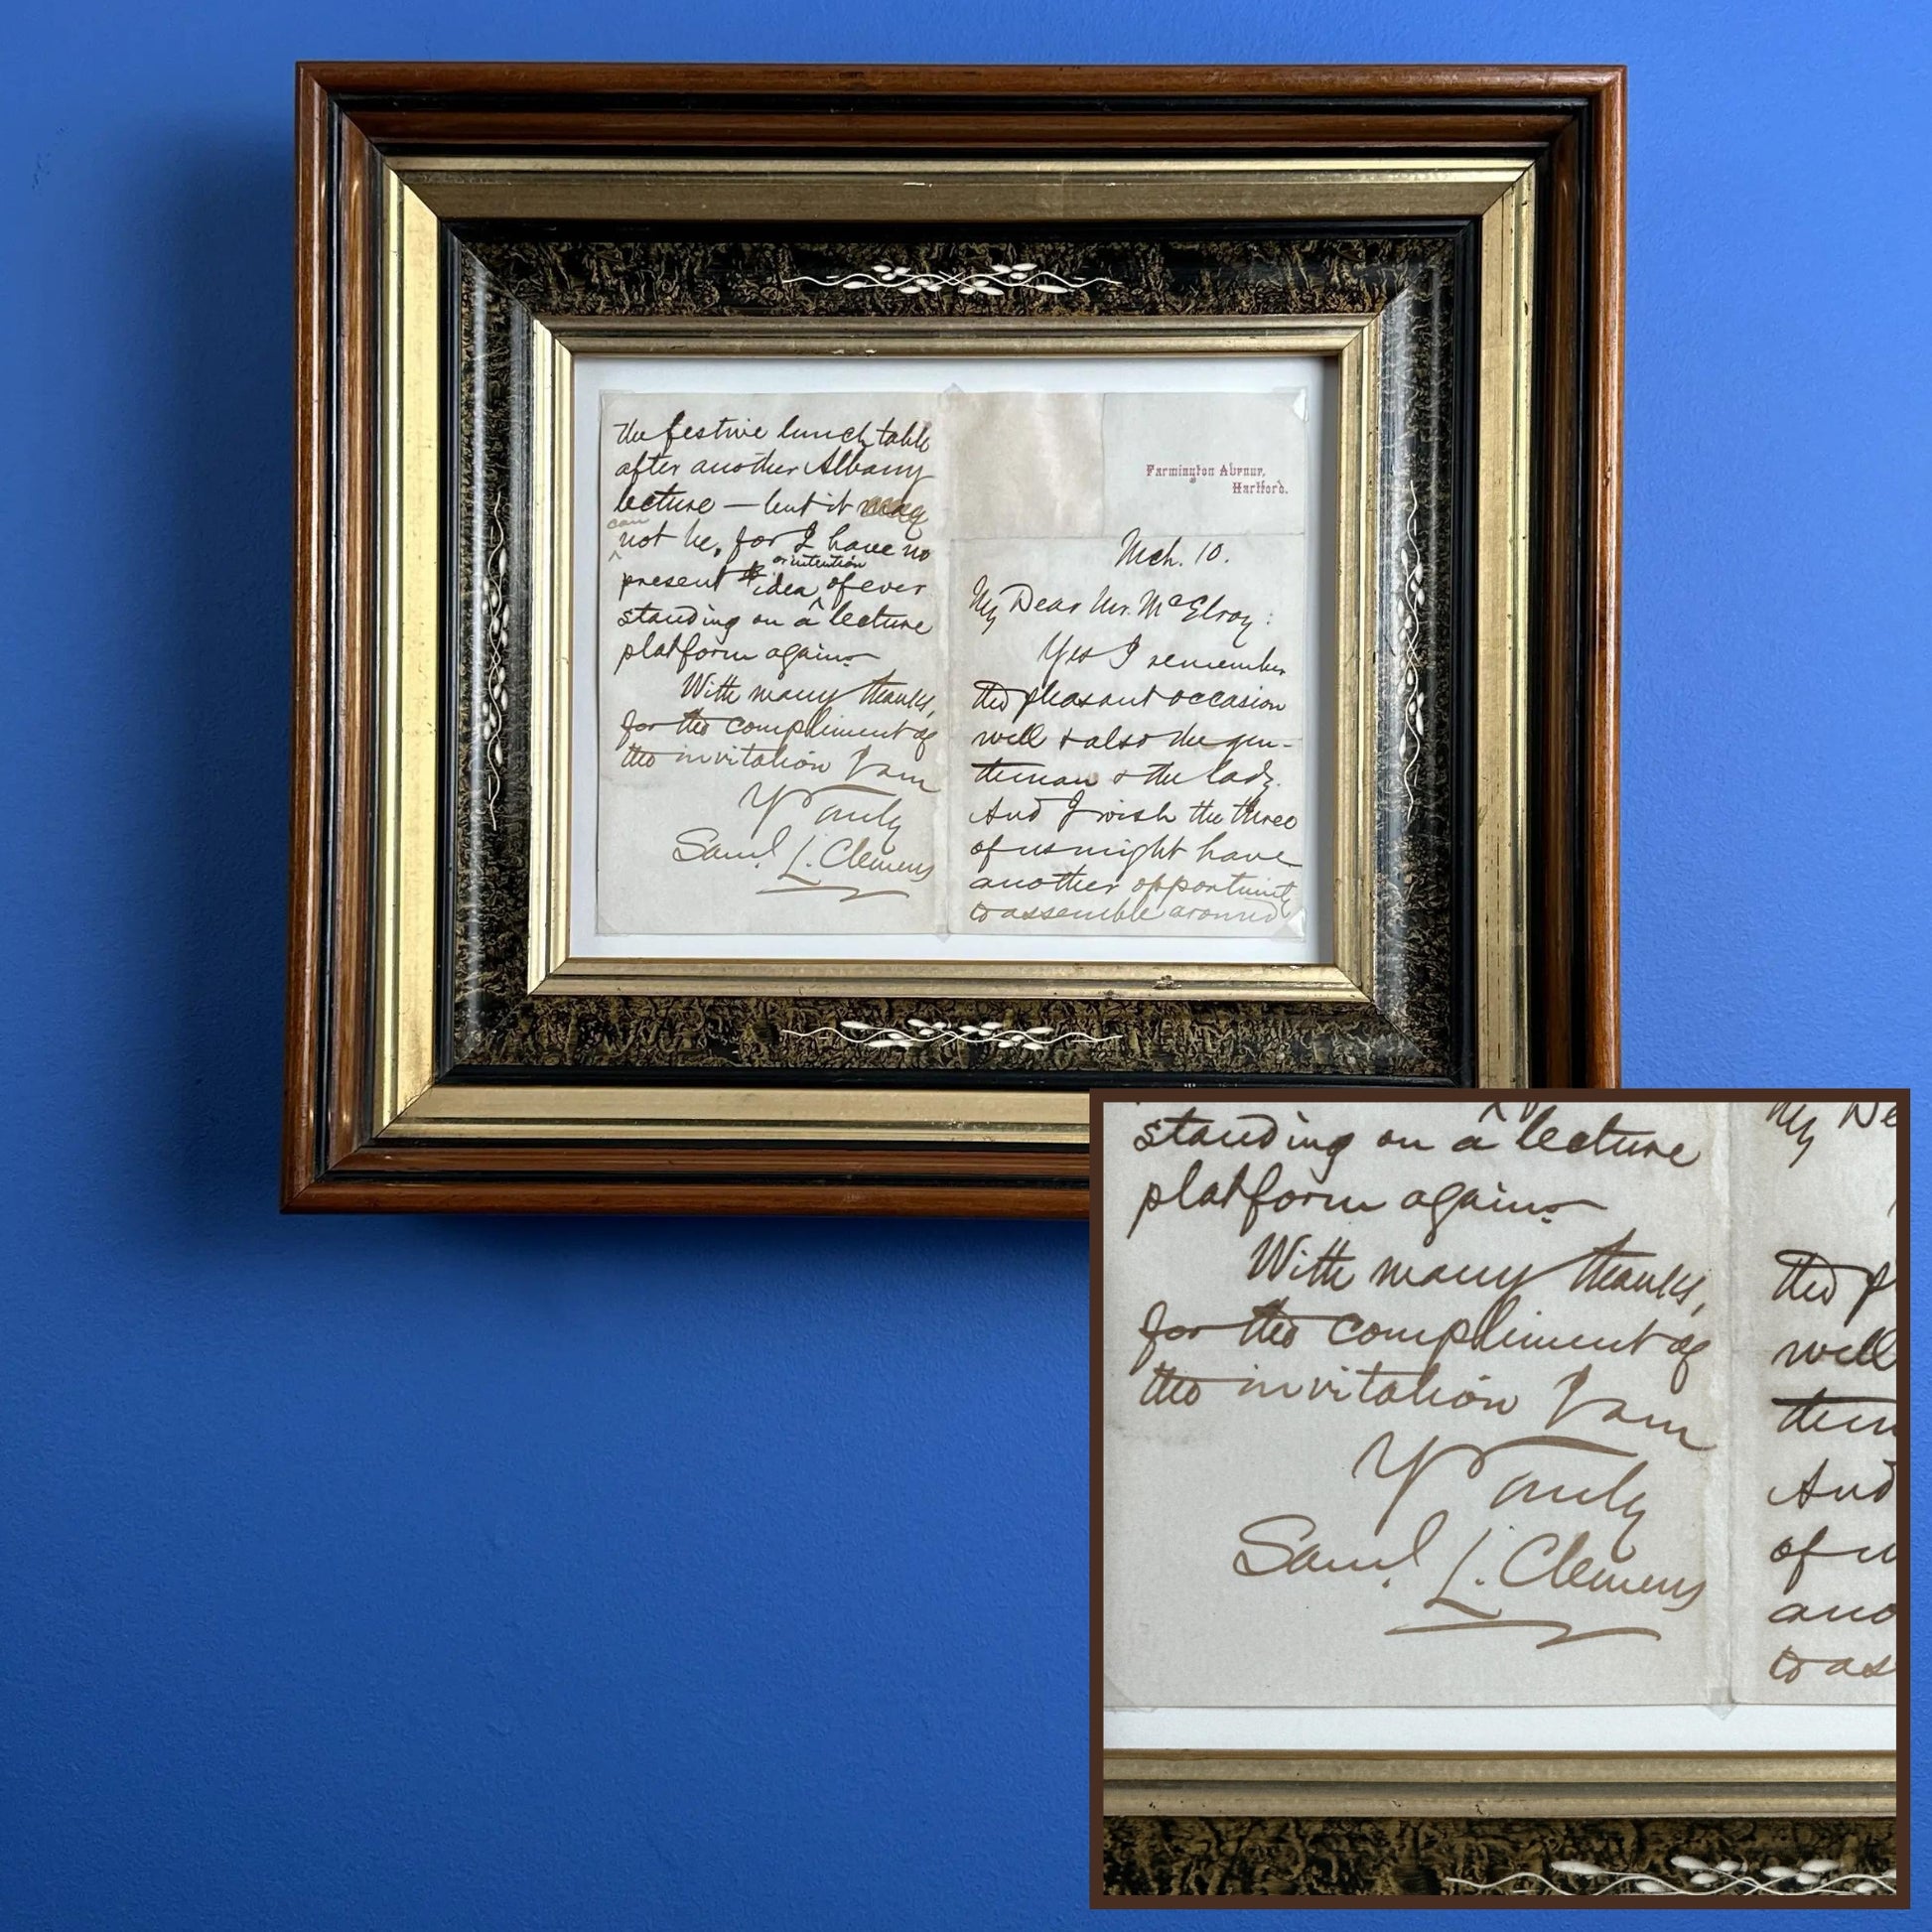 Farmington Avenue,
Hartford.
Mch. 10.
My Dear Mr. McElroy:
Yes I remember
the pleasant occasion
well & also the gen-
tleman & the lady.
And I wish the three
of us might have
another opportunity
to assemble around
the festive lunch table
after another Albany
lecture — but it may
can
not be, for I have no
or intention
present idea of ever
standing on a lecture
platform again.
With many thanks,
for the compliment of
the invitation I am
Yr Truly
Saml. L. Clemens
standing on a lecture
platform again.
With many thanks,
for the compliment of
the invitation I am
Yr Truly
Saml. L. Clemens
My De
the p
well
And
of u
ano
to as